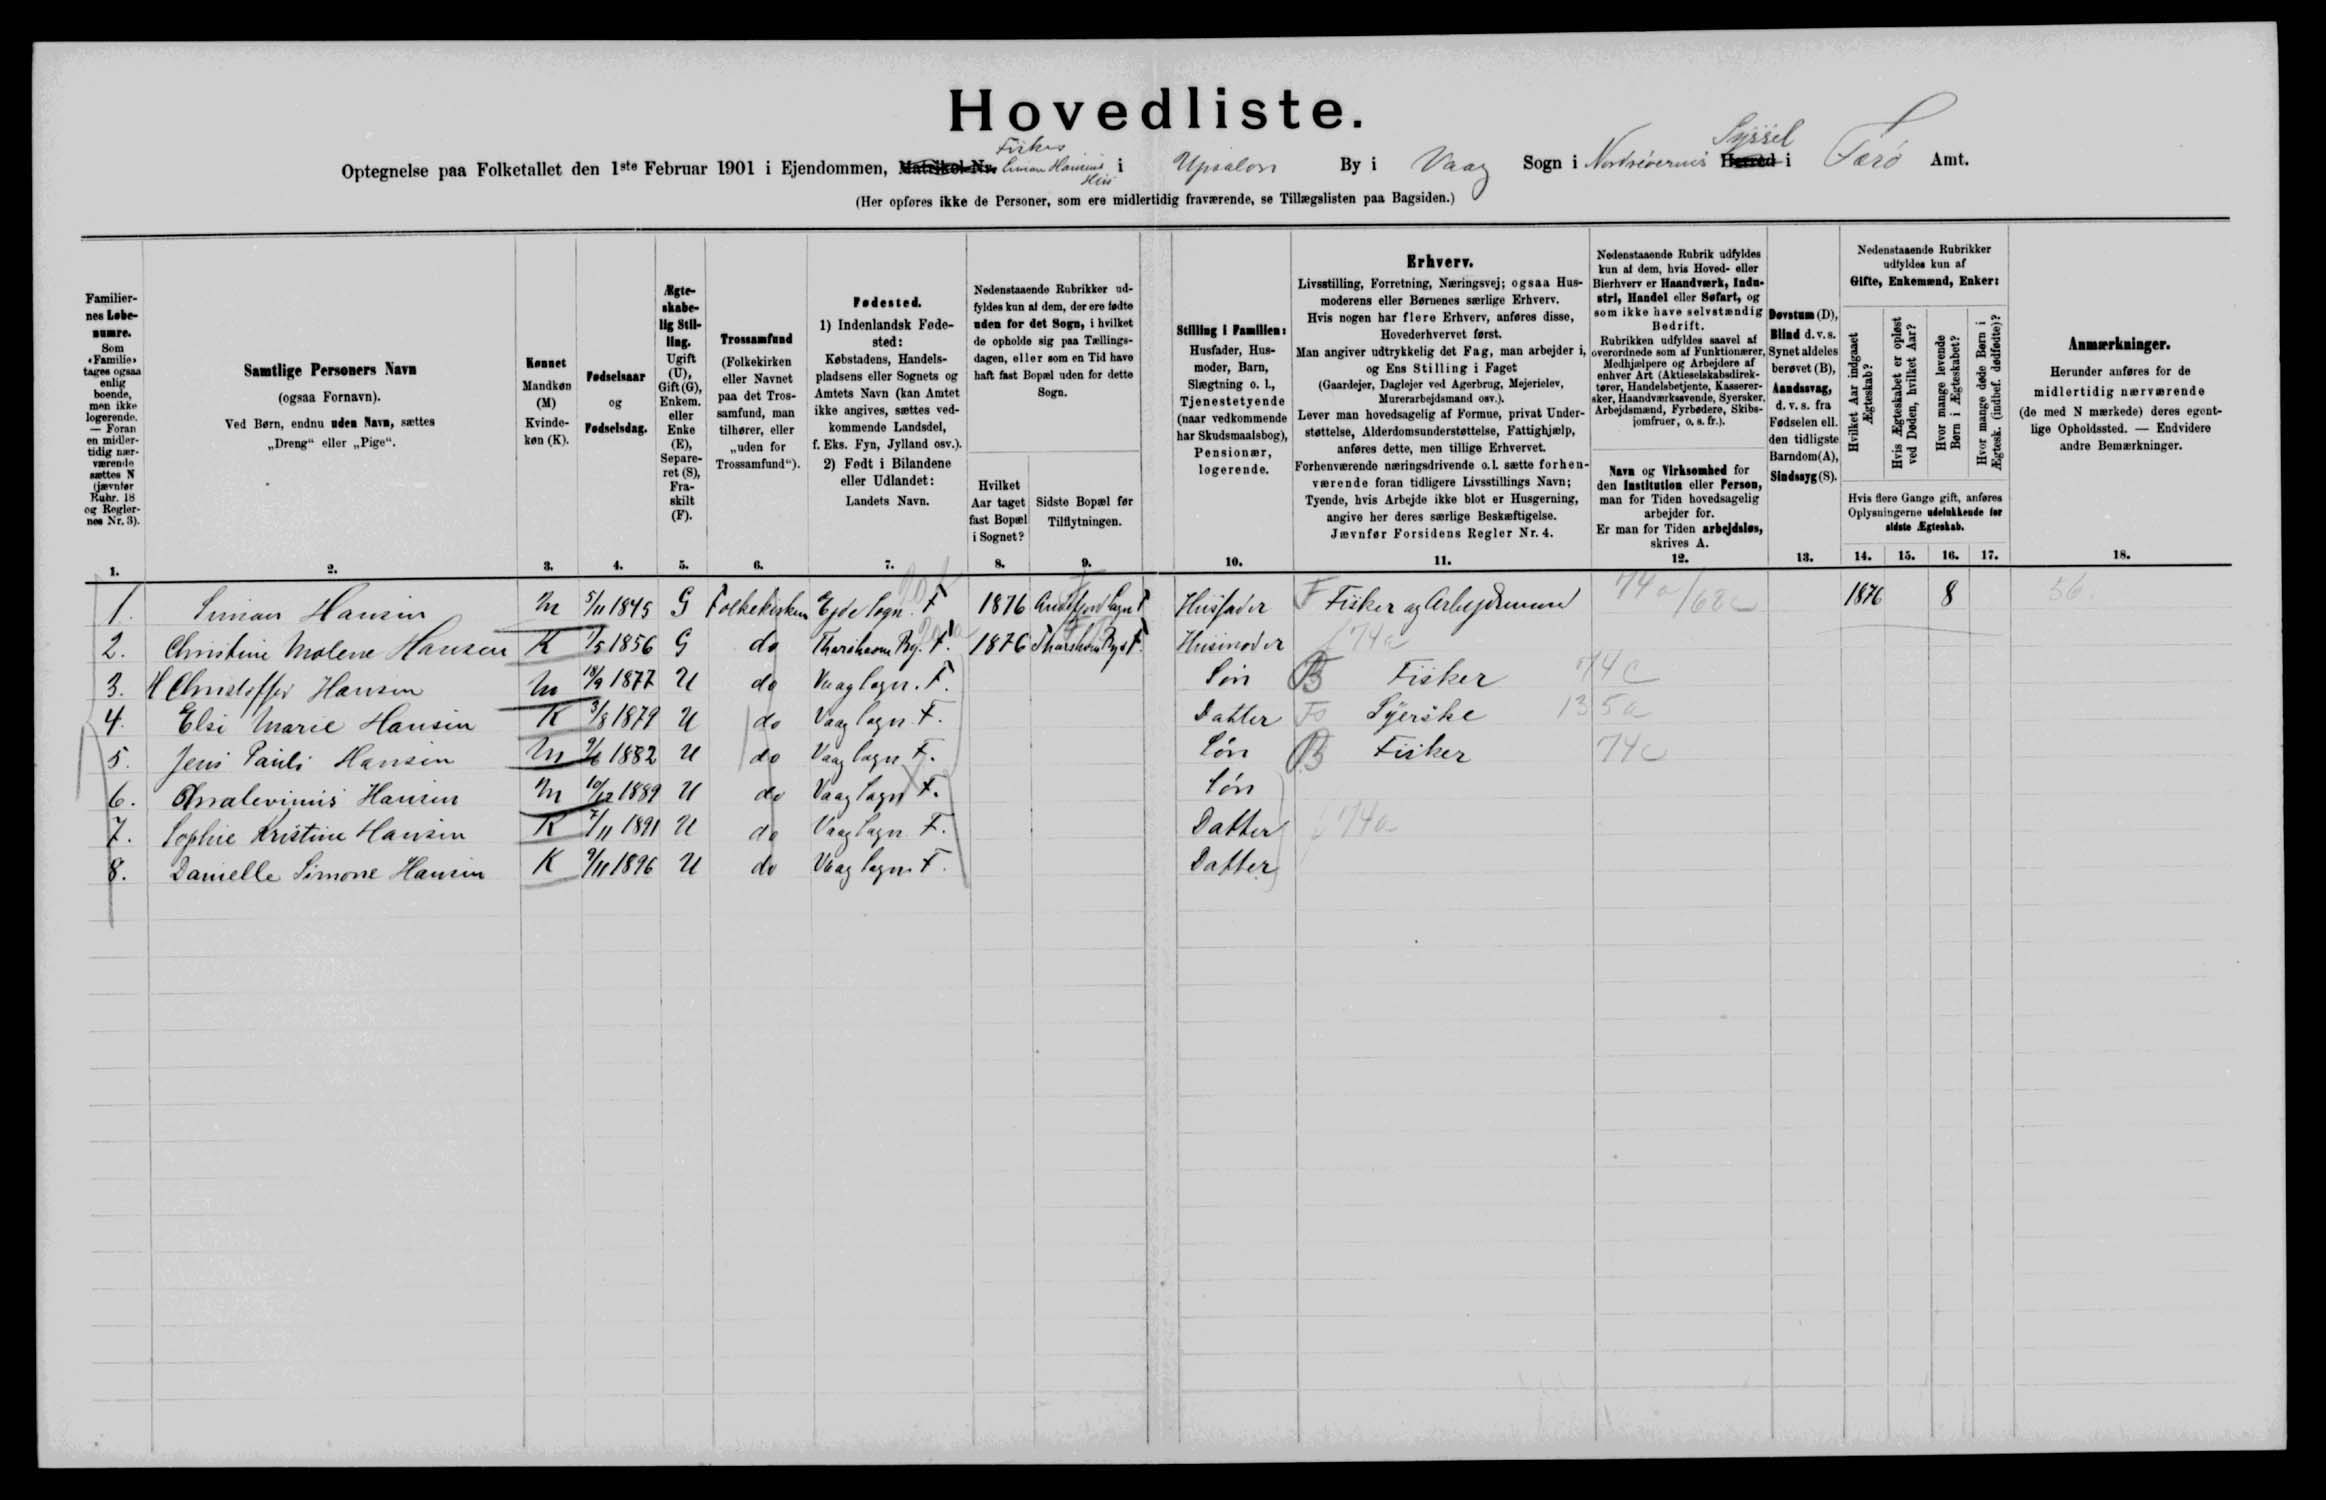 Hovedliste.
Optegnelse paa Folketallet den 1ste Februar 1901 i Ejendommen, Matrikel-Nr. Fiskers Simon Hansens Hus i Upsalon By i Vaag Sogn i Norderöernes Herred Syssel i Færö Amt.
(Her opføres ikke de Personer, som ere midlertidig fraværende, se Tillægslisten paa Bagsiden.)
Familiernes Løbenumre.
Som «Familie» tages ogsaa enlig boende, men ikke logerende. — Foran en midlertidig nærværende sættes N (jævnfør Rubr. 18 og Reglernes Nr. 3).
Samtlige Personers Navn
(ogsaa Fornavn).
Ved Børn, endnu uden Navn, sættes
„Dreng“ eller „Pige“.
Kønnet
Mandkøn (M)
Kvindekøn (K).
Fødselsaar
og
Fødselsdag.
Ægteskabelig Stilling.
Ugift (U), Gift (G), Enkem. eller Enke (E), Separeret (S), Fraskilt (F).
Trossamfund
(Folkekirken eller Navnet paa det Trossamfund, man tilhører, eller „uden for Trossamfund“).
Fødested.
1) Indenlandsk Fødested:
Købstadens, Handelspladsens eller Sognets og Amtets Navn (kan Amtet ikke angives, sættes vedkommende Landsdel, f. Eks. Fyn, Jylland osv.).
2) Født i Bilandene eller Udlandet:
Landets Navn.
Nedenstaaende Rubrikker udfyldes kun af dem, der ere fødte uden for det Sogn, i hvilket de opholde sig paa Tællingsdagen, eller som en Tid have haft fast Bopæl uden for dette Sogn.
Hvilket Aar taget fast Bopæl i Sognet?
Sidste Bopæl før Tilflytningen.
Stilling i Familien:
Husfader, Husmoder, Barn, Slægtning o. l., Tjenestetyende (naar vedkommende har Skudsmaalsbog), Pensionær, logerende.
Erhverv.
Livsstilling, Forretning, Næringsvej; ogsaa Husmoderens eller Børnenes særlige Erhverv.
Hvis nogen har flere Erhverv, anføres disse, Hovederhvervet først.
Man angiver udtrykkelig det Fag, man arbejder i, og Ens Stilling i Faget
(Gaardejer, Daglejer ved Agerbrug, Mejerielev, Murerarbejdsmand osv.).
Lever man hovedsagelig af Formue, privat Understøttelse, Alderdomsunderstøttelse, Fattighjælp, anføres dette, men tillige Erhvervet.
Forhenværende næringsdrivende o. l. sætte forhenværende foran tidligere Livsstillings Navn;
Tyende, hvis Arbejde ikke blot er Husgerning, angive her deres særlige Beskæftigelse.
Jævnfør Forsidens Regler Nr. 4.
Nedenstaaende Rubrik udfyldes kun af dem, hvis Hoved- eller Bierhverv er Haandværk, Industri, Handel eller Søfart, og som ikke have selvstændig Bedrift.
Rubrikken udfyldes saavel af overordnede som af Funktionærer, Medhjælpere og Arbejdere af enhver Art (Aktieselskabsdirektører, Handelsbetjente, Kasserersker, Haandværkssvende, Syersker, Arbejdsmænd, Fyrbødere, Skibsjomfruer, o. s. fr.).
Navn og Virksomhed for den Institution eller Person, man for Tiden hovedsagelig arbejder for.
Er man for Tiden arbejdsløs, skrives A.
Døvstum (D),
Blind d. v. s. Synet aldeles berøvet (B),
Aandssvag, d. v. s. fra Fødselen ell. den tidligste Barndom (A),
Sindssyg (S).
Nedenstaaende Rubrikker udfyldes kun af
Gifte, Enkemænd, Enker:
Hvilket Aar indgaaet Ægteskab?
Hvis Ægteskabet er opløst ved Døden, hvilket Aar?
Hvor mange levende Børn i Ægteskabet?
Hvor mange døde Børn i Ægtesk. (indbef. dødfødte)?
Hvis flere Gange gift, anføres Oplysningerne udelukkende for sidste Ægteskab.
Anmærkninger.
Herunder anføres for de midlertidig nærværende (de med N mærkede) deres egentlige Opholdssted. — Endvidere andre Bemærkninger.
1. 2. 3. 4. 5. 6. 7. 8. 9. 10. 11. 12. 13. 14. 15. 16. 17. 18.
1. Simon Hansen M 5/11 1845 G Folkekirken Ejde Sogn. F 1876 Sogn F Husfader F Fisker og Arbejdsmand 74a/68c 1876 8 56.
2. Christine Malene Hansen K 7/5 1856 G do Thorshavn By. F. 1876 Thorshavn By F. Husmoder 74a
3. H Christoffer Hansen M 18/9 1877 U do Vaag Sogn. F. Søn B Fisker 74c
4. Else Marie Hansen K 3/8 1879 U do Vaag Sogn F. Datter Fo Syerske 135a
5. Jens Pauli Hansen M 9/6 1882 U do Vaag Sogn F. Søn B Fisker 74c
6. Hansen M 10/12 1889 U do Vaag Sogn F. Søn
7. Sophie Kristine Hansen K 7/11 1891 U do Vaag Sogn F. Datter 74a
8. Danielle Simone Hansen K 9/11 1896 U do Vaag Sogn F. Datter